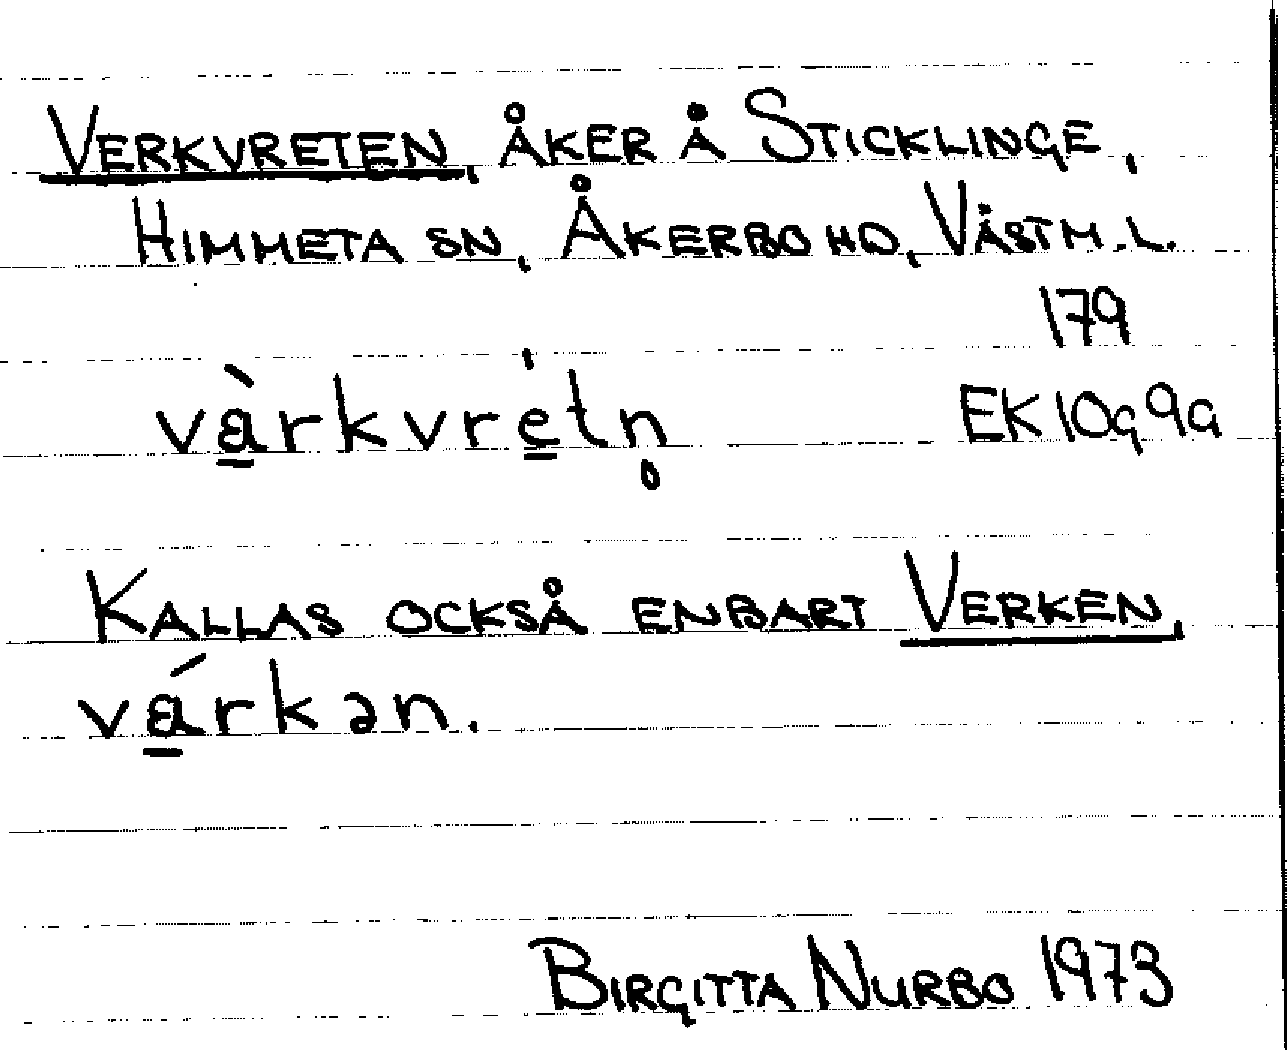 VERKVRETEN, ÅKER Å STICKLINGE,
HIMMETA SN, ÅKERBO HD, VÄSTM. L.
179
vàrkvre̍tn̥ EK 10g 9a
KALLAS OCKSÅ ENBART VERKEN,
várkən.
BIRGITTA NURBO 1973